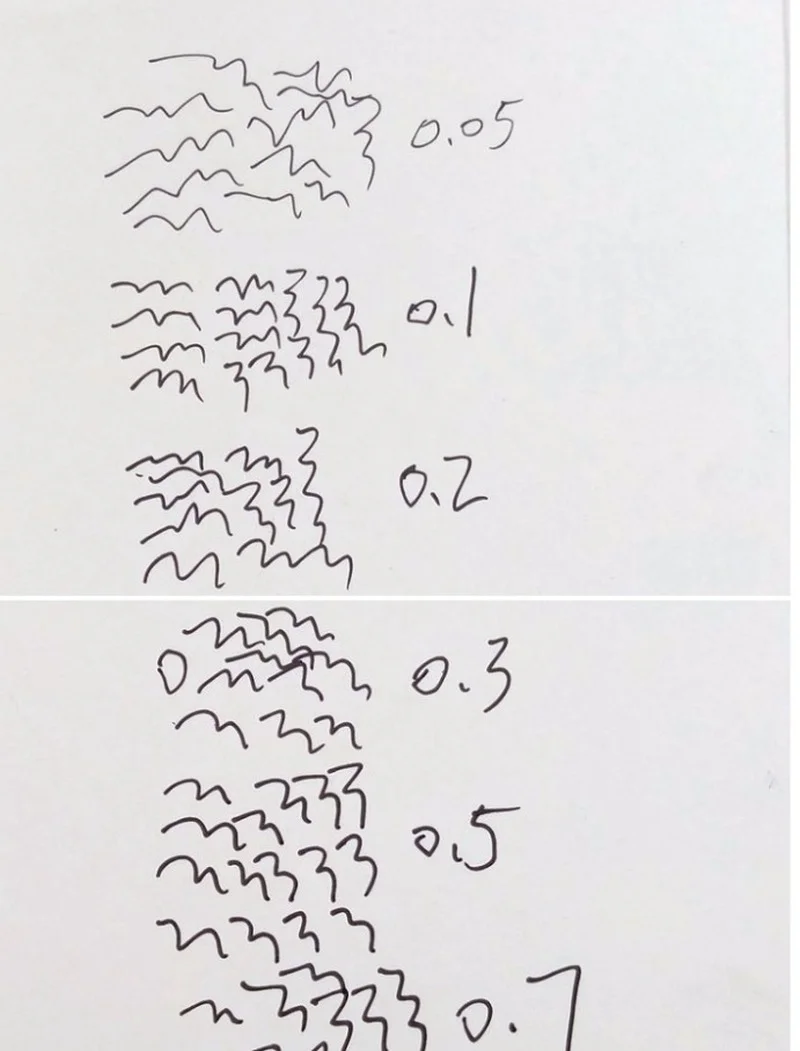 0.05
0.1
0.2
0 0.3
0.5
0.7